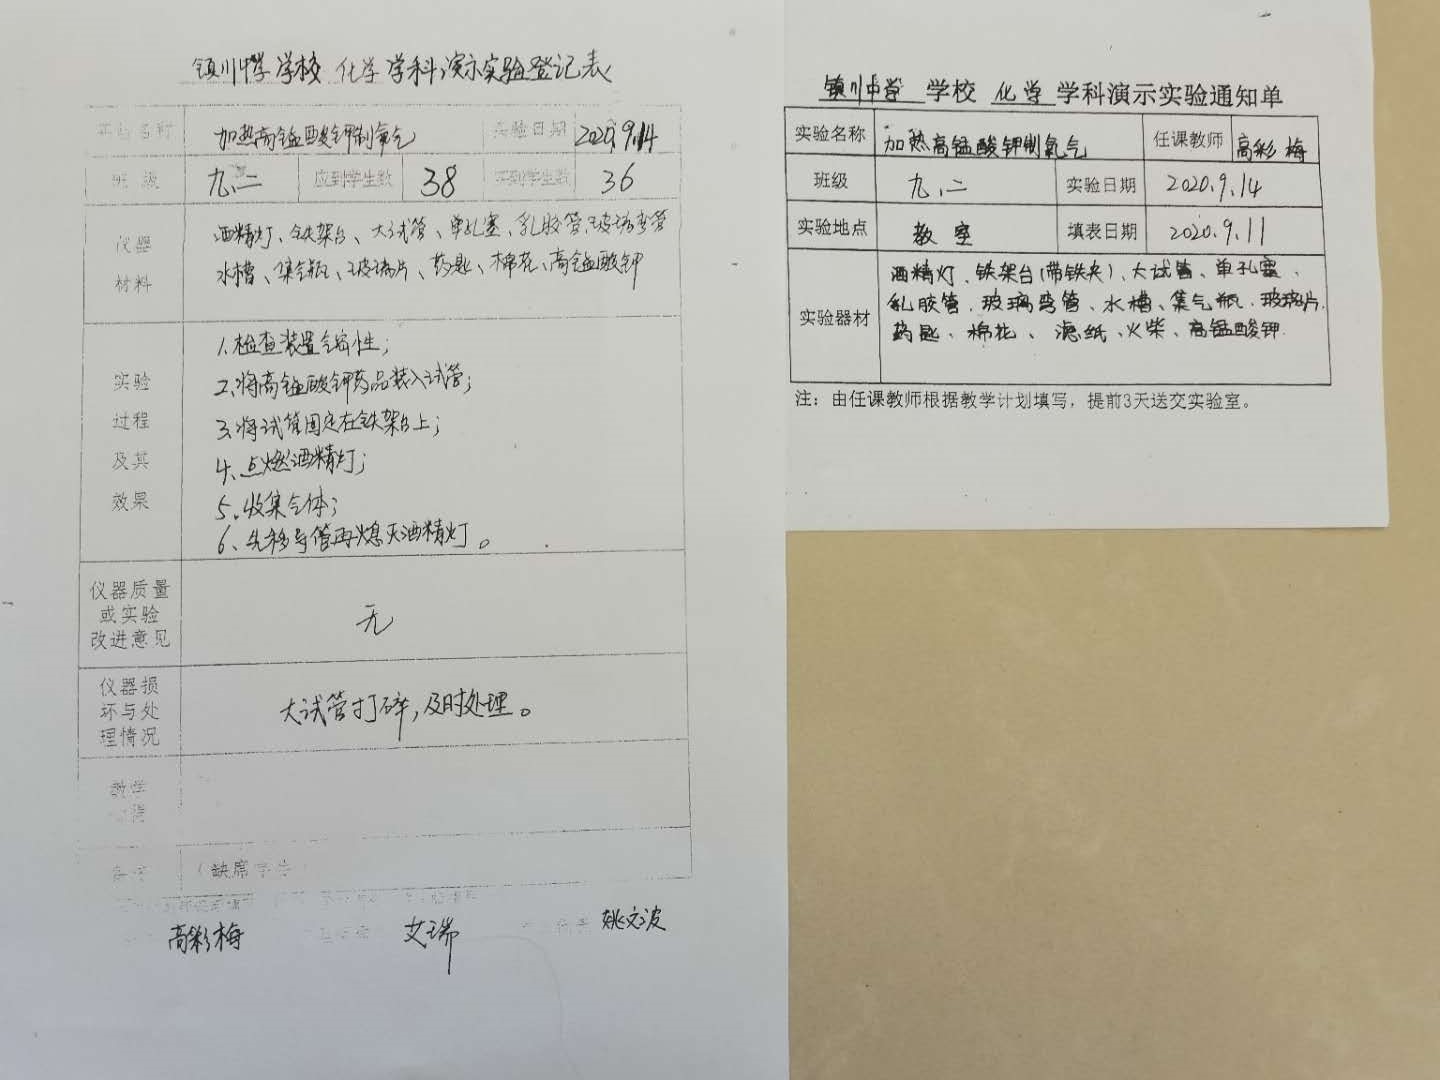 镇川中学学校 化学学科演示实验登记表
实验名称 加热高锰酸钾制氧气 实验日期 2020.9.14
班 级 九.二 应到学生数 38 实到学生数 36
仪器
材料
酒精灯、铁架台、大试管、单孔塞、乳胶管、玻璃弯管
水槽、集气瓶、玻璃片、药匙、棉花、高锰酸钾
实验
过程
及其
效果
1.检查装置气密性；
2.将高锰酸钾药品装入试管；
3.将试管固定在铁架台上；
4、点燃酒精灯；
5、收集气体；
6、先移导管再熄灭酒精灯。
仪器质量
或实验
改进意见
无
仪器损
坏与处
理情况
大试管打碎，及时处理。
教学
备注 （缺席学生
高彩梅 艾瑞 姚文波
镇川中学 学校 化学 学科演示实验通知单
实验名称 加热高锰酸钾制氧气 任课教师 高彩梅
班级 九.二 实验日期 2020.9.14
实验地点 教室 填表日期 2020.9.11
实验器材
酒精灯、铁架台(带铁夹)、大试管、单孔塞、
乳胶管、玻璃弯管、水槽、集气瓶、玻璃片、
药匙、棉花、滤纸、火柴、高锰酸钾.
注：由任课教师根据教学计划填写，提前3天送交实验室。